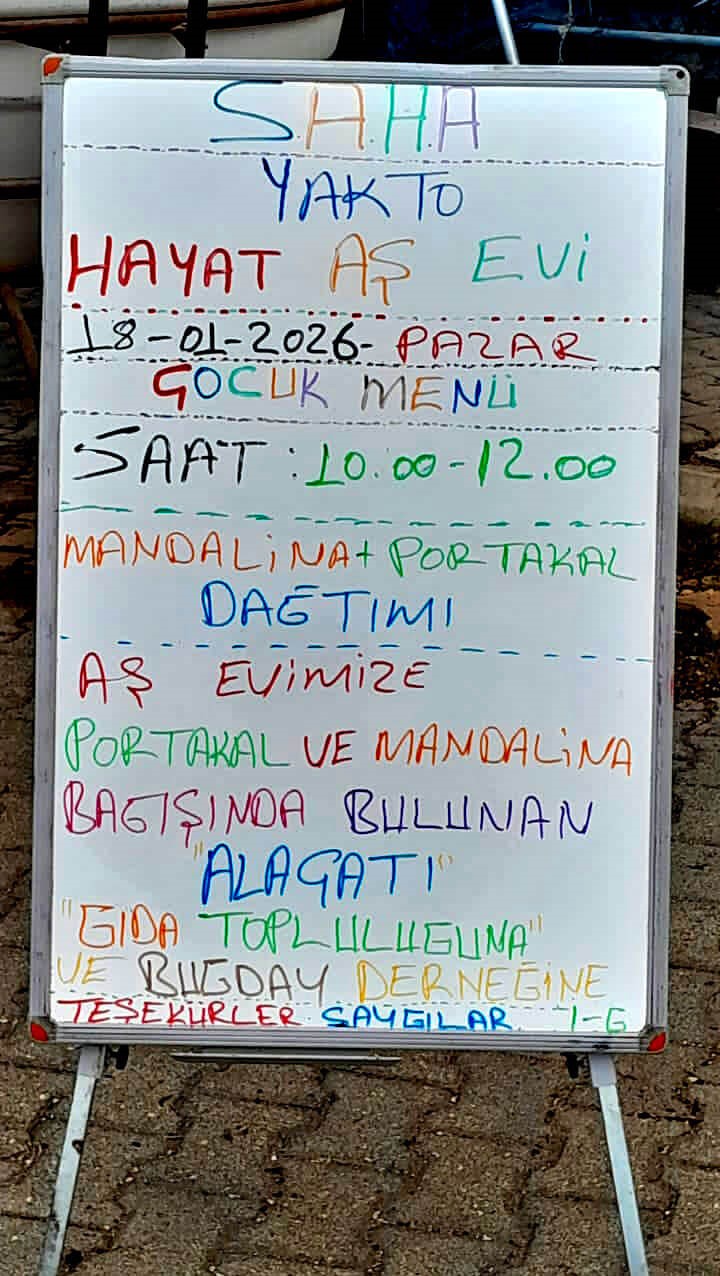 S.A.H.A
YAKTO
HAYAT AŞ EVİ
18-01-2026- PAZAR
ÇOCUK MENÜ
SAAT : 10.00-12.00
MANDALİNA+ PORTAKAL
DAĞTIMI
AŞ EVİMİZE
PORTAKAL VE MANDALİNA
BAĞIŞINDA BULUNAN
"ALAÇATI"
"GIDA TOPLULUĞUNA"
VE BUĞDAY DERNEĞİNE
TEŞEKÜRLER SAYGILAR İ-G